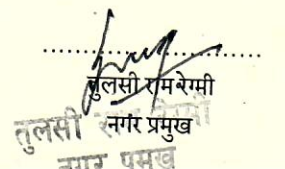 तुलसी राम रेग्मी
नगर प्रमुख
तुलसी राम रेग्मी
नगर प्रमुख